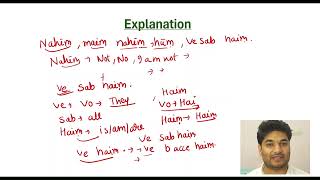 Explanation
Nahim, maim nahim hum, ve sab haim.
Nahim → Not, No, I am not →
ve Sab haim.
ve, Vo → They
, Haim
vo + Hai
Sab → all
Haim → is/am/are
Haim → Haim
ve Sab haim
ve haim. → ve bacce haim.